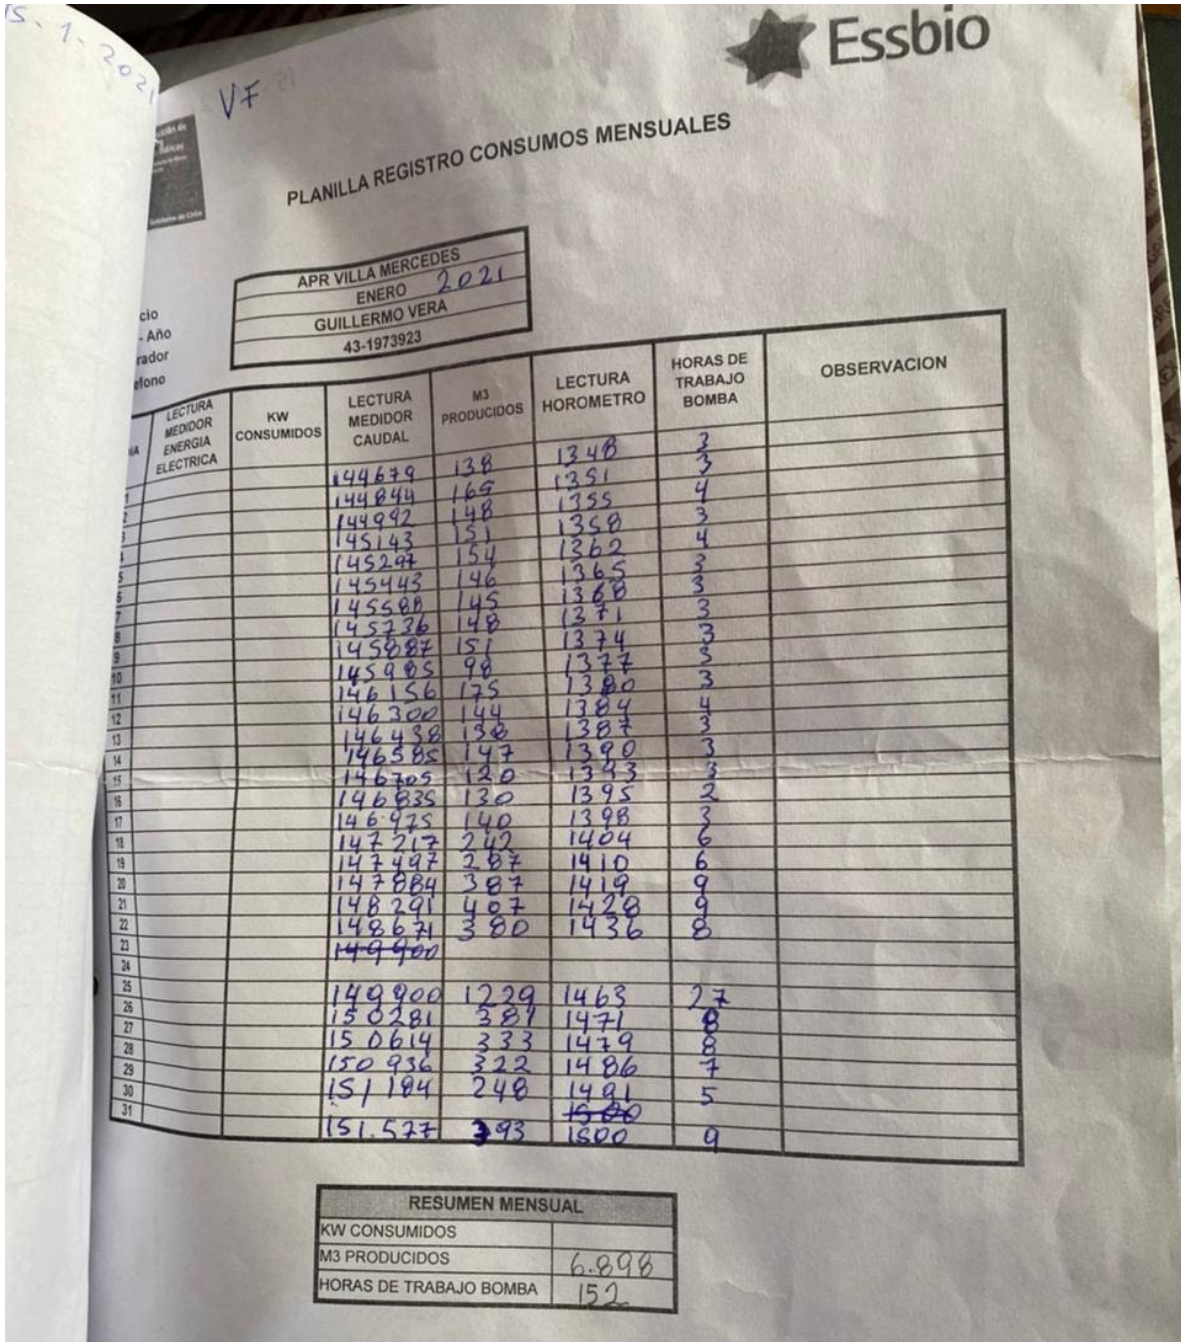 15-1-2021
Essbio
VF
Gobierno de Chile
PLANILLA REGISTRO CONSUMOS MENSUALES
APR VILLA MERCEDES
cio
ENERO 2021
- Año
GUILLERMO VERA
rador
43-1973923
efono
IA LECTURA MEDIDOR ENERGIA ELECTRICA KW CONSUMIDOS LECTURA MEDIDOR CAUDAL M3 PRODUCIDOS LECTURA HOROMETRO HORAS DE TRABAJO BOMBA OBSERVACION
1 144679 138 1348 3
2 144844 165 1351 3
3 144992 148 1355 4
4 145143 151 1358 3
5 145297 154 1362 4
6 145443 146 1365 3
7 145588 145 1368 3
8 145736 148 1371 3
9 145887 151 1374 3
10 145985 98 1377 3
11 146156 175 1380 3
12 146300 144 1384 4
13 146438 138 1387 3
14 146585 147 1390 3
15 146705 120 1393 3
16 146835 130 1395 2
17 146975 140 1398 3
18 147217 242 1404 6
19 147497 287 1410 6
20 147884 387 1419 9
21 148291 407 1428 9
22 148671 380 1436 8
23 149900
24
25 149900 1229 1463 27
26 150281 381 1471 8
27 150614 333 1479 8
28 150936 322 1486 7
29 151184 248 1491 5
30 1500
31 151.577 393 1500 9
RESUMEN MENSUAL
KW CONSUMIDOS
M3 PRODUCIDOS 6.898
HORAS DE TRABAJO BOMBA 152